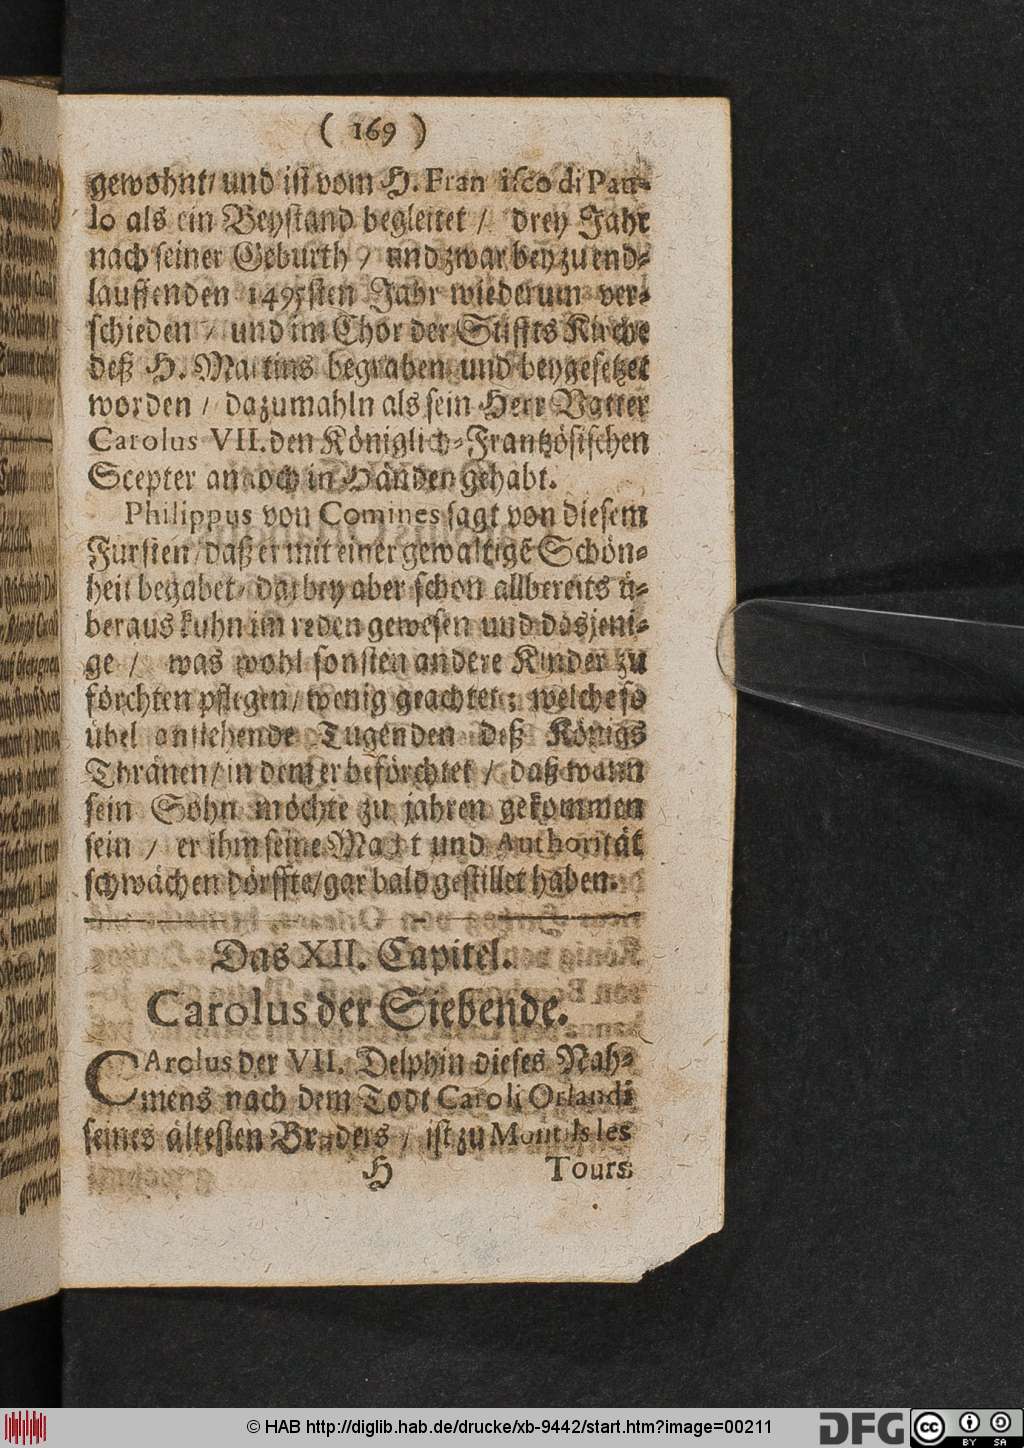 ( 169 )
gewohnt/ und ist vom H. Fran isco di Pau-
lo als ein Beystand begleitet / drey Jahr
nach seiner Geburth / und zwar bey zu end-
lauffenden 1495sten Jahr wiederum ver-
schieden / und im Chor der Stiffts Kirche
deß H. Martins begraben und beygesetzet
worden / dazumahln als sein Herr Vatter
Carolus VII. den Königlich-Frantzösischen
Scepter annoch in Händen gehabt.
Philippus von Comines sagt von diesem
Fürsten/ daß er mit einer gewaltigē Schön-
heit begabet/ darbey aber schon allbereits ü-
beraus kühn im reden gewesen und dasjeni-
ge / was wohl sonsten andere Kinder zu
förchten pflegen/ wenig geachtet; welche so
übel anstehende Tugenden deß Königs
Thränen/ in dem er beförchtet / daß wann
sein Sohn möchte zu jahren gekommen
sein / er ihm seine Macht und Authorität
schwächen dörffte/ gar bald gestillet haben.
Das XII. Capitel.
Carolus der Siebende.
CArolus der VII. Delphin dieses Nah-
mens nach dem Todt Caroli Orlandi
seines ältesten Bruders / ist zu Montils les
H Tours
© HAB http://diglib.hab.de/drucke/xb-9442/start.htm?image=00211
DFG
cc BY SA